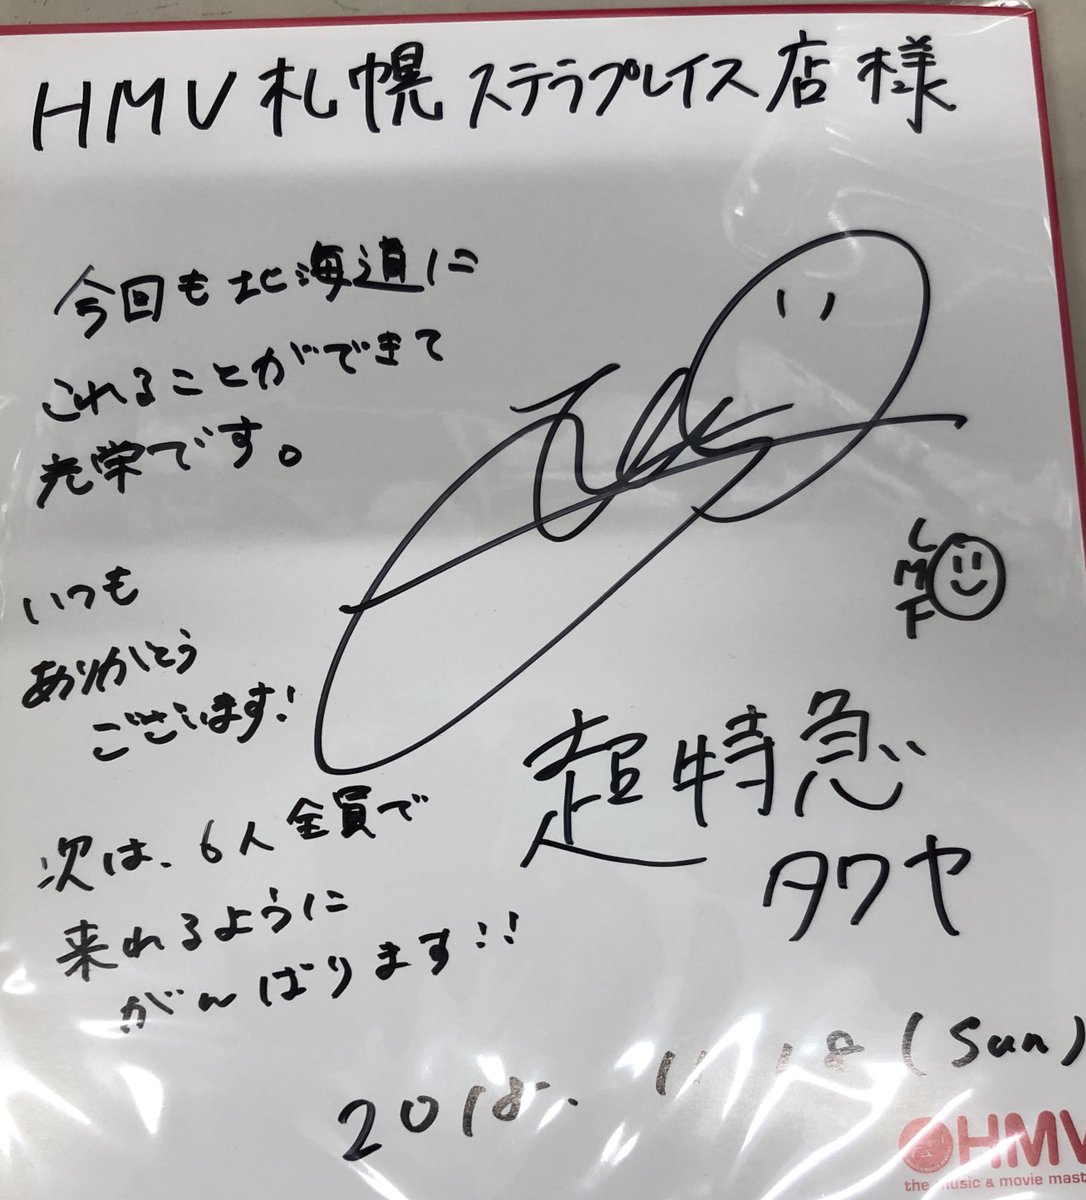 HMV札幌ステラプレイス店様
今回も北海道に
これることができて
光栄です。
いつも
ありがとう
ございます!
次は、6人全員で
来れるように
がんばります!!
LMF
超特急
タクヤ
2018.11.18(Sun)
HMV
the music & movie mast